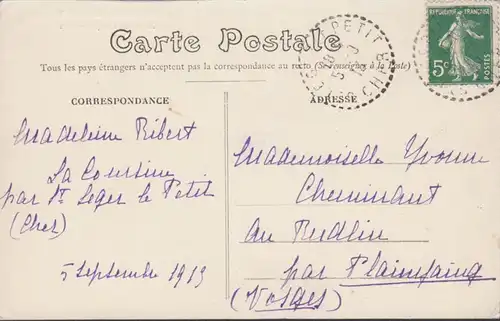 Carte Postale
Tous les pays étrangers n'acceptent pas la correspondance au recto (Se renseigner à la Poste)
CORRESPONDANCE
ADRESSE
REPUBLIQUE FRANÇAISE
5c
POSTES
PETIT
CHER
Madeleine Ribert
La Coursine
par St Leger le Petit
(Cher)
5 Septembre 1913
Mademoiselle Yvonne
Cheminant
au Rudlin
par Plainfaing
(Vosges)